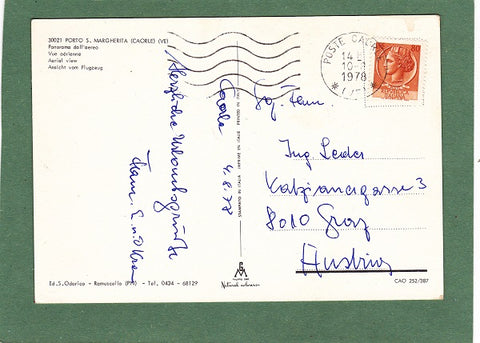 30021 PORTO S. MARGHERITA (CAORLE) (VE)
Panorama dall'aereo
Vue aérienne
Aerial view
Ansicht vom Flugzeug
POSTE CAORLE
14 -
10
1978
* (VE) *
80
Herzliche Urlaubsgrüße
Caorle 4.8.78
Fam.
Sg. Fam.
Ing.
Katzianergasse 3
8010 Graz
Austria
Ed. S. Odorico - Ramuscello (PN) - Tel. 0434 - 68129
CAO 252/287